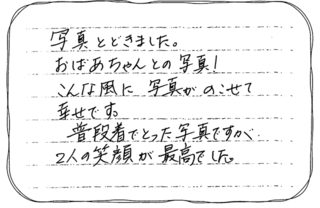 写真とどきました。
おばあちゃんとの写真!
こんな風に 写真が のこせて
幸せです。
普段着でとった写真ですが、
2人の笑顔が 最高でした。